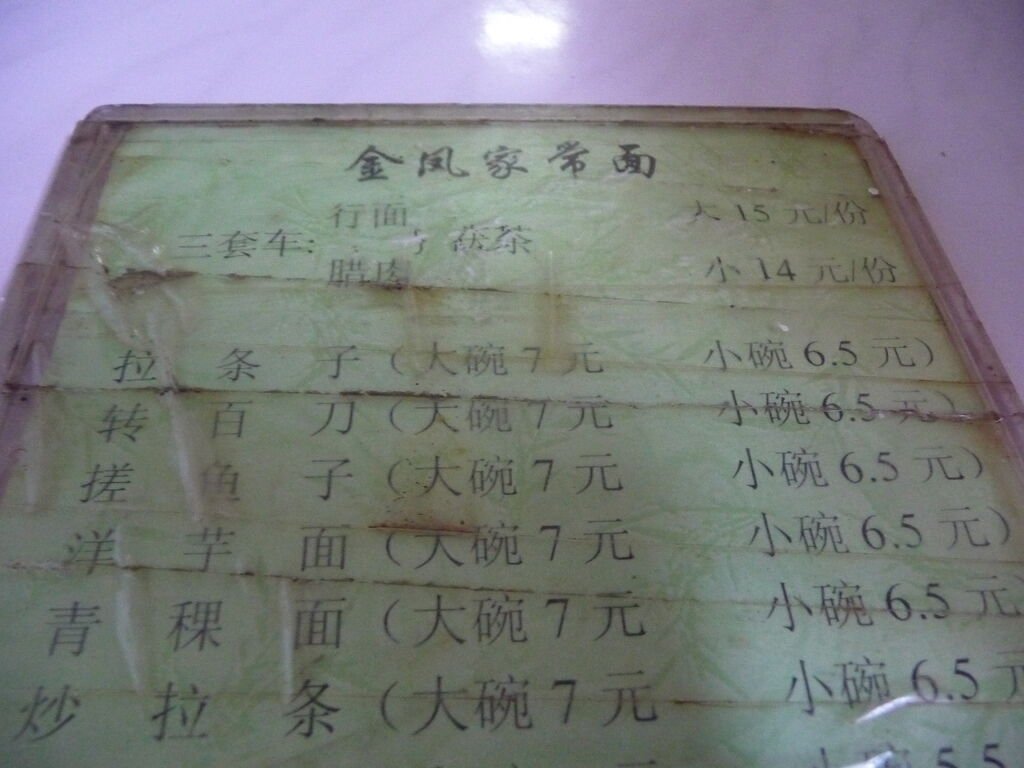 金凤家常面
行面 大 15 元/份
三套车: 茯茶
腊肉 小 14 元/份
拉条子（大碗 7 元 小碗 6.5 元）
转百刀（大碗 7 元 小碗 6.5 元）
搓鱼子（大碗 7 元 小碗 6.5 元）
洋芋面（大碗 7 元 小碗 6.5 元）
青稞面（大碗 7 元 小碗 6.5 元）
炒拉条（大碗 7 元 小碗 6.5 元
小碗 5.5